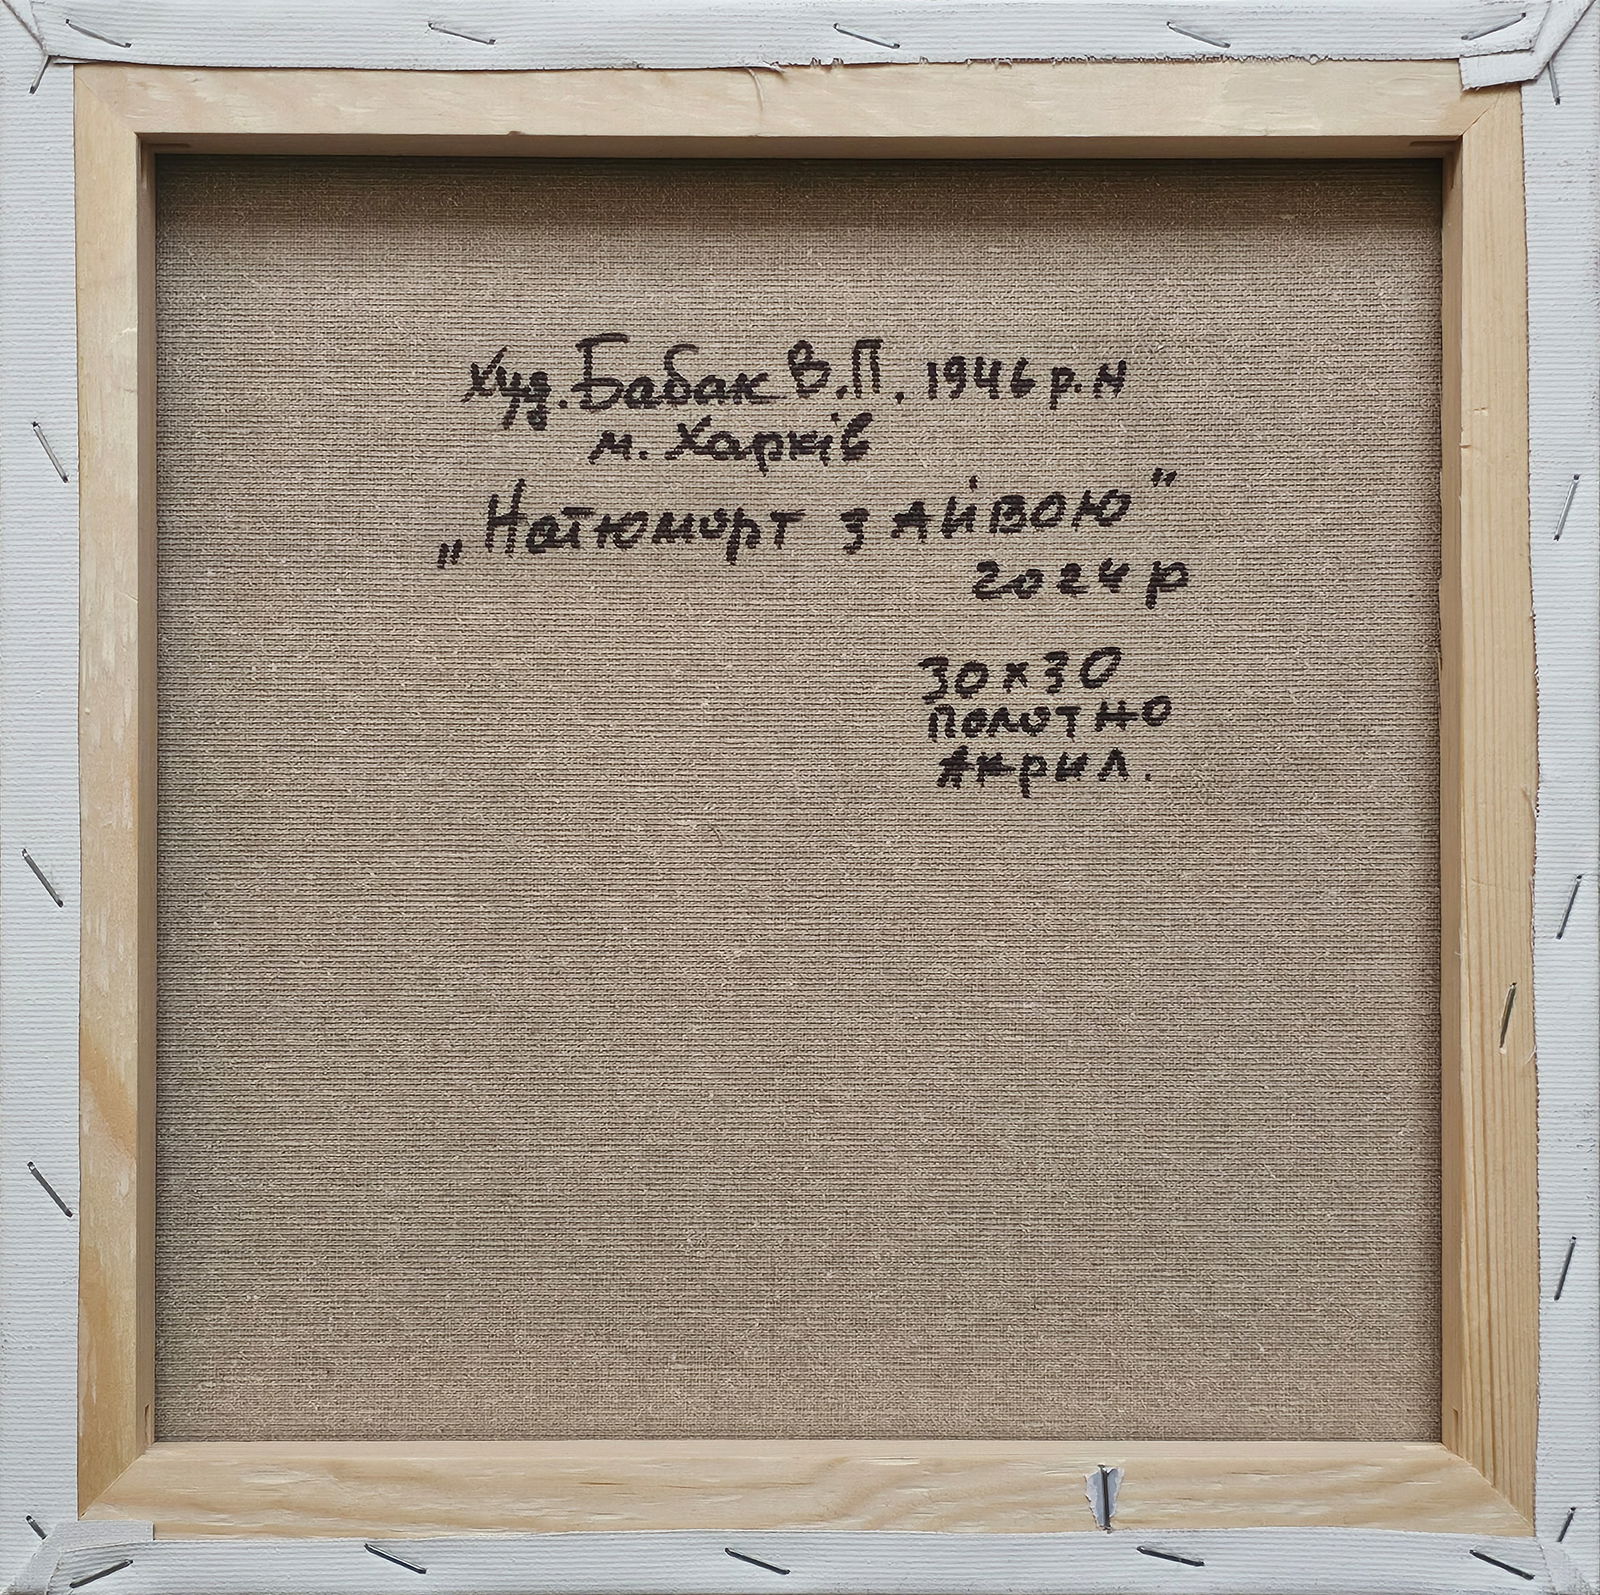 Худ. Бабак В.П. 1946 р.н
м. Харків
„Натюморт з айвою"
2024 р
30×30
полотно
Акрил.